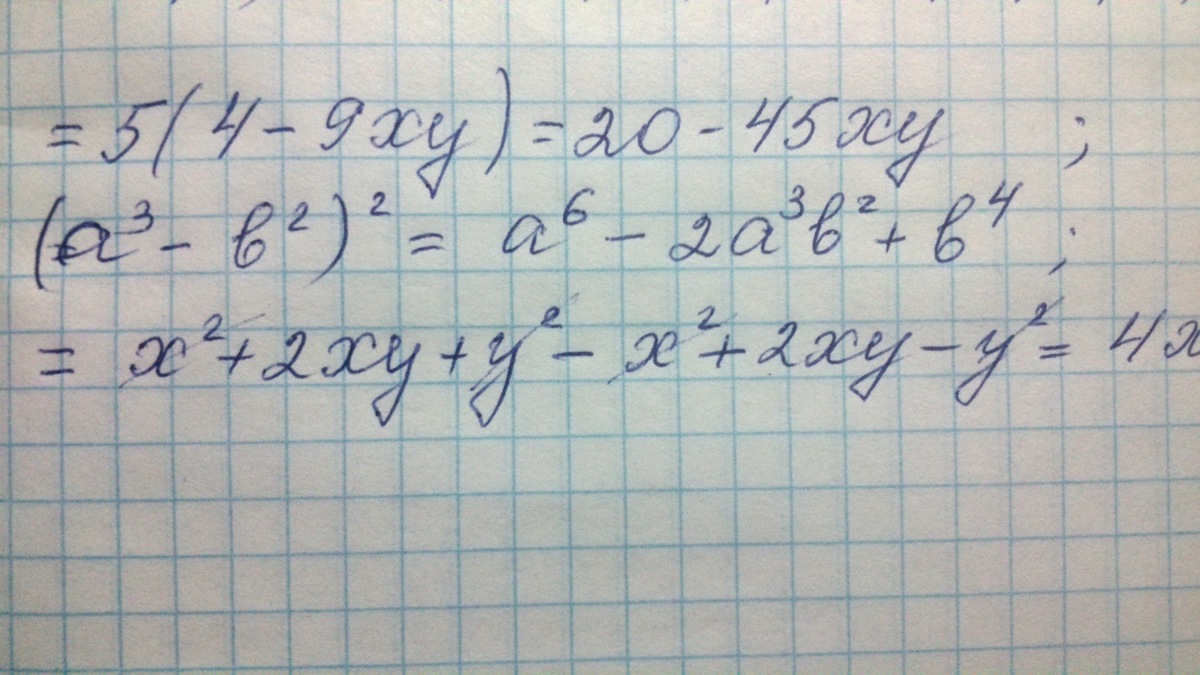 = 5(4 - 9xy) = 20 - 45xy ;
(a³ - b²)² = a⁶ - 2a³b² + b⁴ ;
= x² + 2xy + y² - x² + 2xy - y² = 4x